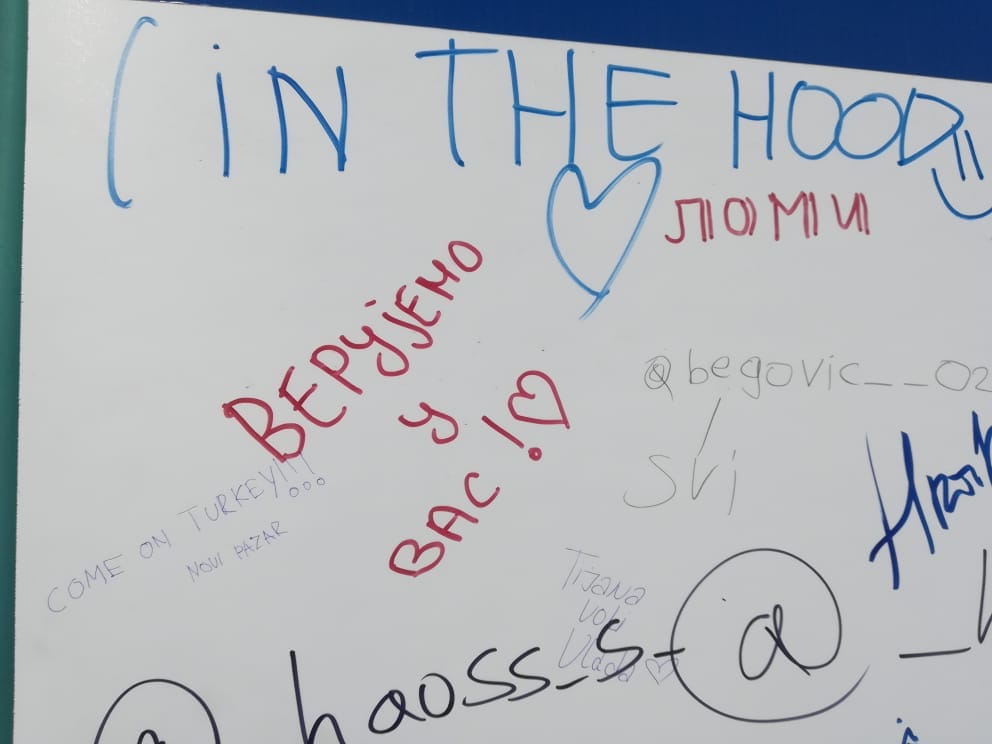 (iN THE HOOD
ЛОМИ
ВЕРУЈЕМО
У
ВАС!
@begovic__02
Svi
COME ON TURKEY!!!
NOVI PAZAR
Tijana
voli
Vlada
@haoss_s_
@_